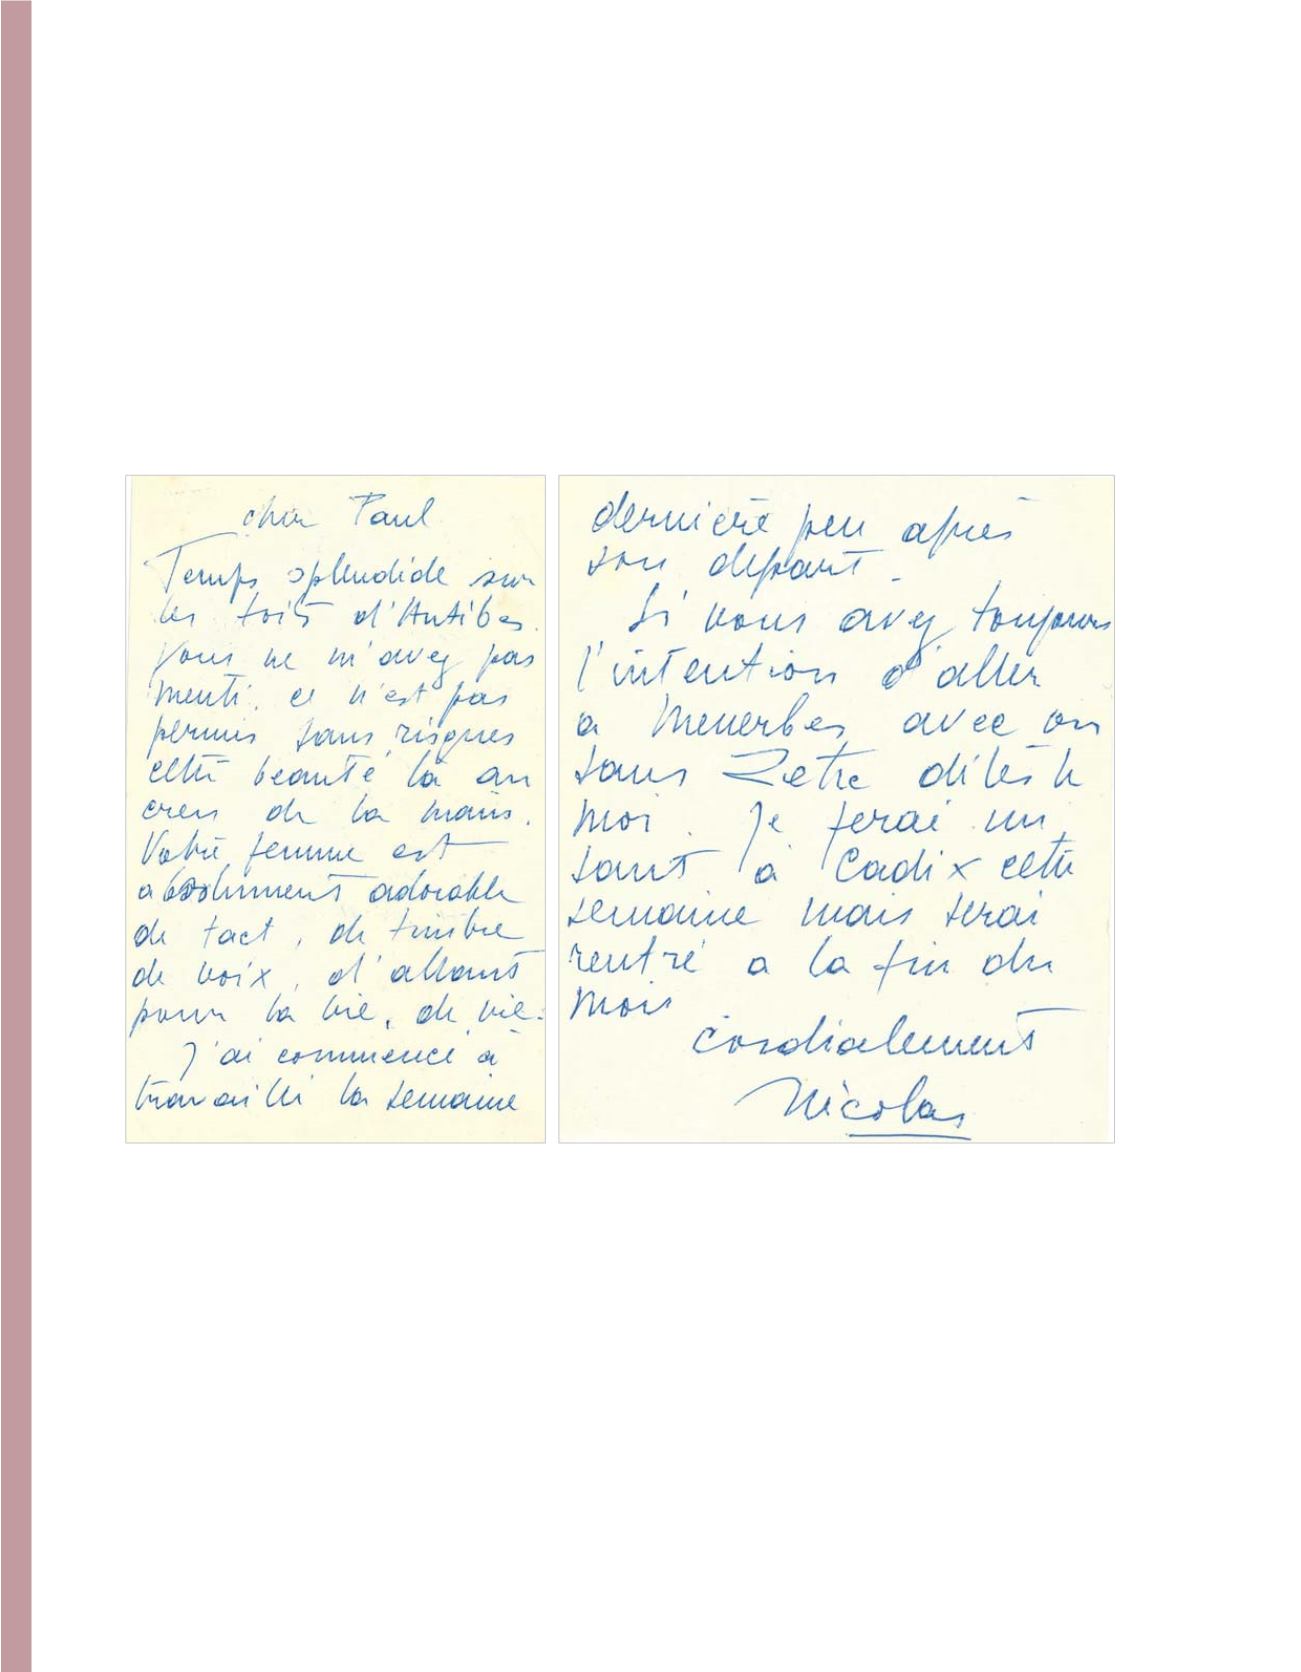 cher Paul
Temps splendide sur
les toits d'Antibes.
Vous ne m'avez pas
menti. ce n'est pas
permis sans risques
cette beauté là au
creux de la main.
Votre femme est
absolument adorable
de tact, de timbre
de voix, d'allant
pour la vie, de vie.
J'ai commencé à
travailler la semaine
dernière peu après
son départ.
Si vous avez toujours
l'intention d'aller
a Menerbes avec ou
sans Zette dites le
moi. Je ferai un
saut à Cadix cette
semaine mais serai
rentré a la fin du
mois
Cordialement
Nicolas